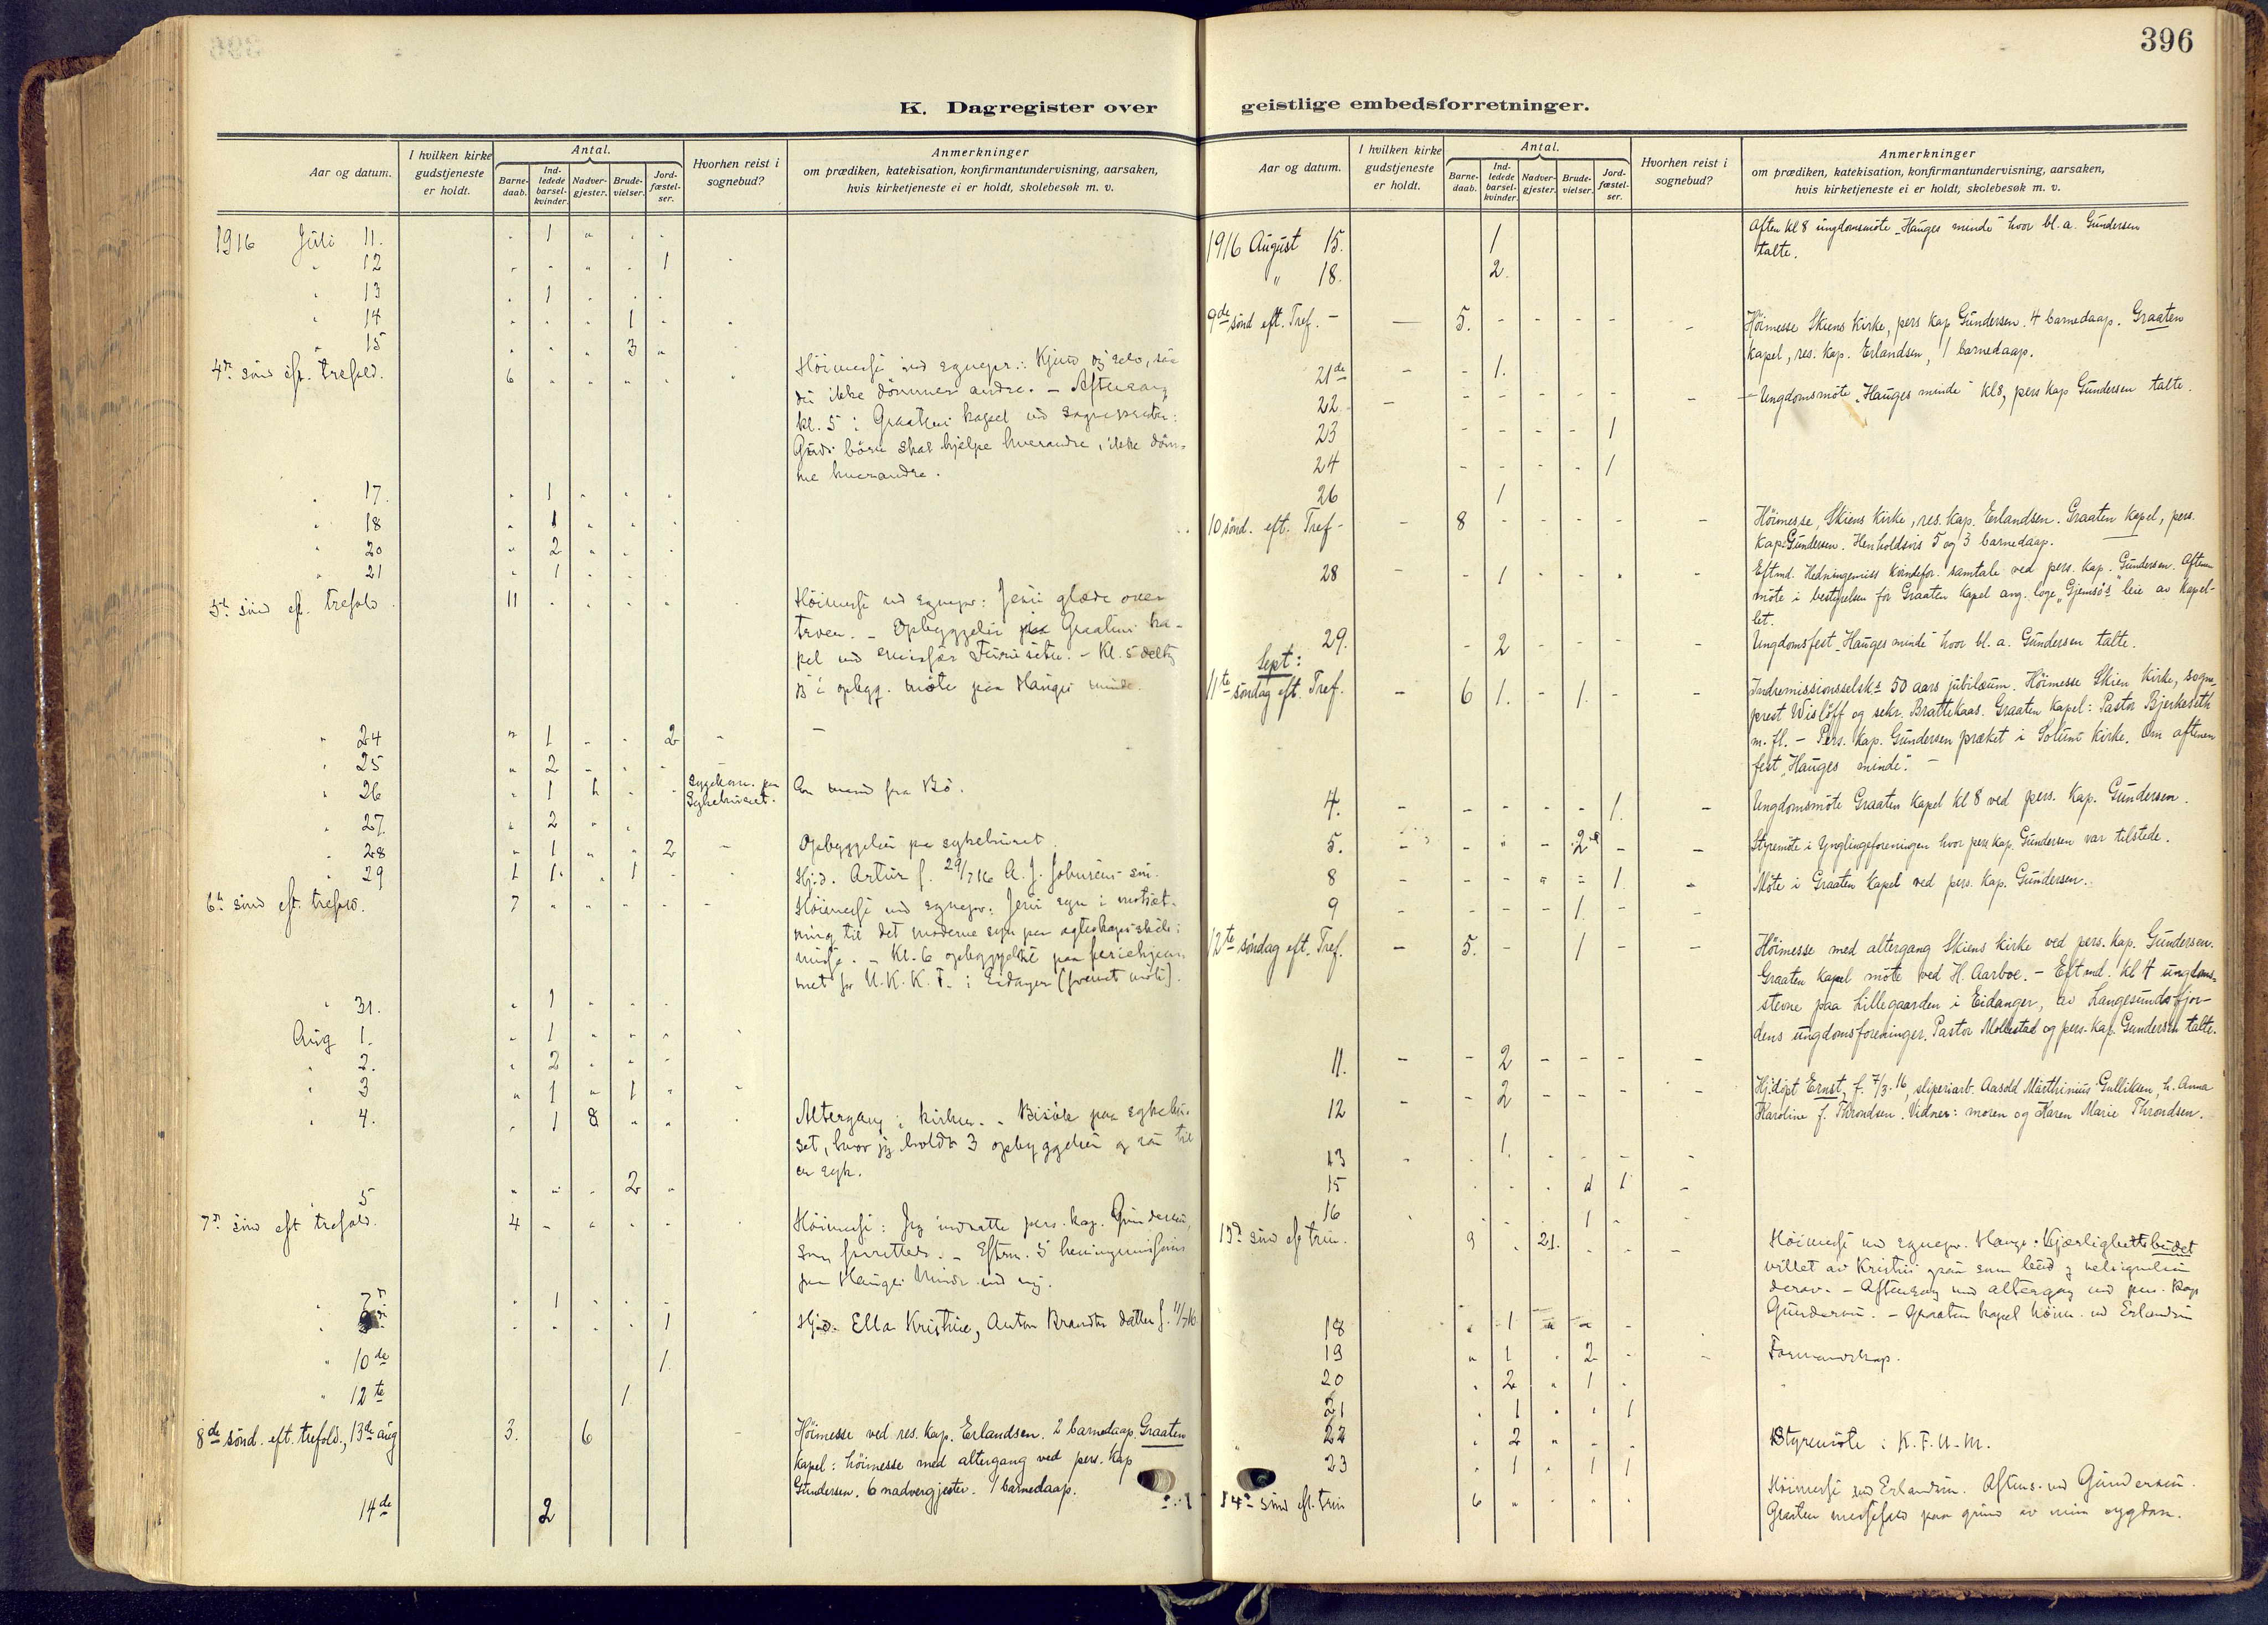 396
K. Dagregister over geistlige embedsforretninger.
Aar og datum.
I hvilken kirke gudstjeneste er holdt.
Antal.
Barne-daab.
Ind-ledede barsel-kvinder.
Nadver-gjester.
Brude-vielser.
Jord-fæstel-ser.
Hvorhen reist i sognebud?
Anmerkninger
om prædiken, katekisation, konfirmantundervisning, aarsaken,
hvis kirketjeneste ei er holdt, skolebesøk m. v.
1916 Juli 11. " 1 " " "
" 12 " " " " 1
" 13 " 1 " " "
" 14 " " " 1 "
" 15 " " " 3 "
4de sönd eft. trefold. 6 " " " " Höimesse ved sognepr.: Kjend dig selv, saa
du ikke dömmer andre. – Aftensang
kl. 5 i Graatens kapel ved sognepresten:
Guds börn skal hjelpe hverandre, ikke döm-
me hverandre.
" 17. " 1 " " "
" 18 " 1 " " "
" 20 " 2 " " "
" 21 " 1 " " "
5te sönd eft. trefold. 11 " " " " Höimesse ved sognepr: Jesu glæde over
troen. – Opbyggelse Graatens ka-
pel ved – Kl. 5 deltog
jeg i opbygg. möte paa Hauges minde.
" 24 " 1 " " 2 –
" 25 " 2 " " "
" 26 " 1 1 " " Sygekom. paa Sykehuset. En mand fra Bö.
" 27. " 2 " "
" 28 " 1 " " 2 – Opbyggelse paa sykehuset.
" 29 1 1 " 1 – Hj.d. Artur f. 29/7 16 A. J. Johnsens sön.
6te sönd eft. trefold. 7 " " " – Höimesse ved sognepr: Jesu syn i motsæt-
ning til det moderne syn paa egteskaps-skils-
misse. – Kl. 6 opbyggelse paa feriehjem-
met for U.K.K.F. i Eidanger
" 31. " 1 " " "
Aug 1. " 1 " " "
" 2. " 2 " " "
" 3 " 1 " 1 "
" 4. " 1 8 " " Altergang i kirken. – Besök paa sykehu-
set, hvor jeg holdt 3 opbyggelser og saa til
en syk.
" 5 " " " 2 "
7de sönd eft trefold. 4 – " " " Höimesse: Jeg indsatte pers. kap. Gundersen,
som forrettet. – Eftm. 5 hedningemission
paa Hauges Minde ved mig.
" 7de " 1 " "
" " " " " 1 Hj.d. Ella Kristine, Anton Brandts datter f. 11/7 16
" 10de 1.
" 12te 1
8de sönd. eft. trefold., 13de aug 3. 6 Höimesse ved res. kap. Erlandsen. 2 barnedaap. Graaten
kapel: höimesse med altergang ved pers. kap
Gundersen. 6 nadvergjester. 1 barnedaap.
14de 2
Aar og datum.
I hvilken kirke gudstjeneste er holdt.
Antal.
Barne-daab.
Ind-ledede barsel-kvinder.
Nadver-gjester.
Brude-vielser.
Jord-fæstel-ser.
Hvorhen reist i sognebud?
Anmerkninger
om prædiken, katekisation, konfirmantundervisning, aarsaken,
hvis kirketjeneste ei er holdt, skolebesøk m. v.
1916 August 15. 1 Aften kl 8 ungdomsmöte „Hauges minde" hvor bl. a. Gundersen
talte.
" 18. 2.
9de sönd eft. Tref. – — 5. - - - - - Höimesse Skiens Kirke, pers kap Gundersen. 4 barnedaap. Graaten
Kapel, res. kap. Erlandsen, 1 barnedaap.
21de - - 1.
22 - - - - - - - – Ungdomsmöte „Hauges minde" kl 8, pers kap Gundersen talte.
23 - - - - 1
24 - - - - 1
26 1
10 sönd. eft. Tref - - 8 - - - - - Höimesse, Skiens Kirke, res. kap. Erlandsen. Graaten Kapel, pers.
kap. Gundersen. Henholdsvis 5 og 3 barnedaap.
28 - - 1 - - - - Eftmd. Hedningemiss Kvindefor. samtale ved pers. kap. Gundersen. Aftenen
möte i bestyrelsen for Graaten Kapel ang. loge „Gjemsö's" leie av kapel-
let.
29. - 2 - - - Ungdomsfest „Hauges minde" hvor bl. a. Gundersen talte.
Sept:
11te söndag eft. Tref. - 6 1. - 1. - - Indremissionsselsk.s 50 aars jubilæum. Höimesse Skien Kirke, sogne-
prest Wislöff og sekr. Brattekaas. Graaten Kapel: Pastor Bjerkeseth
m. fl. – Pers. kap. Gundersen præket i Solum Kirke. Om aftenen
fest „Hauges minde". –
4. - - - - - 1. - Ungdomsmöte Graaten Kapel kl 8 ved pers. kap. Gundersen.
5. - - " - 2 - - Styremöte i Ynglingeforeningen hvor pers kap. Gundersen var tilstede.
8 - - - " - 1. - Möte i Graaten Kapel ved pers. kap. Gundersen.
9 - - - - 1. - -
12te söndag eft. Tref. - 5. - 1 - - Höimesse med altergang Skiens kirke ved pers. kap. Gundersen.
Graaten Kapel möte ved H. Aarboe. – Eftmd. kl 4 ungdoms-
stevne paa Lillegaarden i Eidanger, av Langesundsfjor-
dens ungdomsforeninger. Pastor Mollestad og pers. kap. Gundersen talte.
11. - - 2 - - - -
12 - - 2 - - - Hj.döpt Ernst, f. 7/3 16, sliperiarb. Aasold Marthinius Gulliksen, h. Anna
Karoline f. Throndsen. Vidner: moren og Karen Marie Throndsen.
13 - - 1. - - - -
15 - - - 1 1 -
16 - - - 1 - -
13de sönd eft trin. 9 - 21. - - - Höimesse ved sognepr. Hauge: Kjærlighetsbudet
villet av Kristus som bud og velsignelsen
derav. – Aftensang med altergang ved pers. kap
Gundersen. – Graaten kapel höim. ved Erlandsen
18 " 1 " " -
19 " 1 " 2 - - Formandskap.
20 " 2 " 1 "
21 " 1 " " 1
22 " 2 " - - Styremöte i K.F.U.M.
23 " 1 " 1 1
14de sönd eft. trin 6 " " " " Höimesse ved Erlandsen. Aftens. ved Gundersen.
Graaten messefald paa grund av min sygdom.